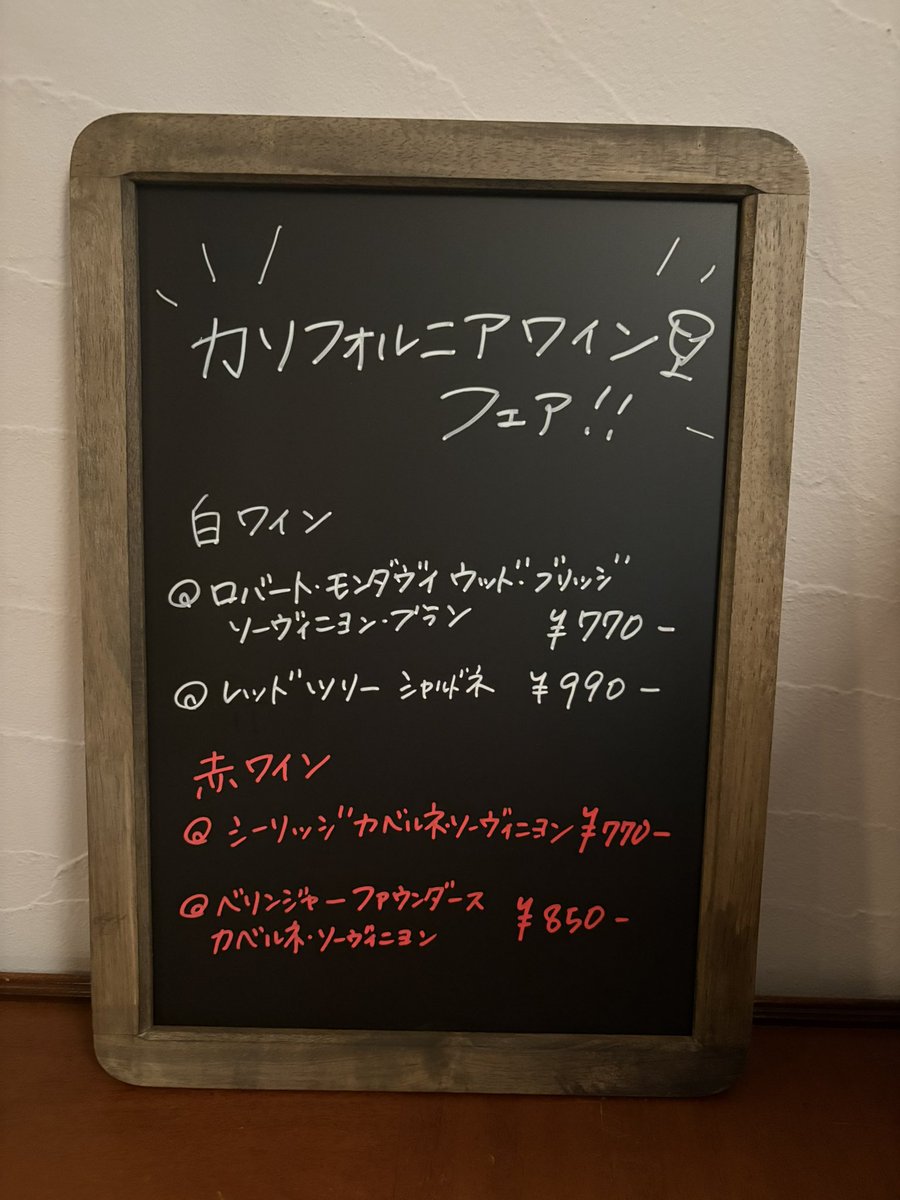 カリフォルニアワイン
フェア!!
白ワイン
@ロバート・モンダヴィ ウッド・ブリッジ
ソーヴィニヨン・ブラン ¥770-
@レッドツリー シャルドネ ¥990-
赤ワイン
@シーリッジカベルネ・ソーヴィニヨン¥770-
@ベリンジャーファウンダース
カベルネ・ソーヴィニヨン ¥850-